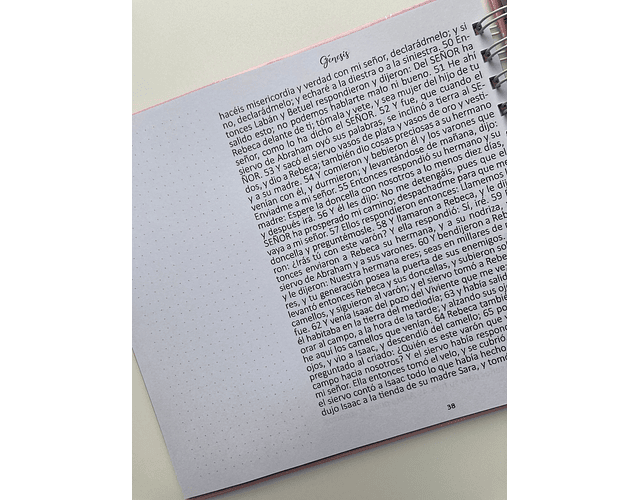 Génesis
hacéis misericordia y verdad con mi señor, declarádmelo; y si
no, declarádmelo; y echaré a la diestra o a la siniestra. 50 En-
tonces Labán y Betuel respondieron y dijeron: Del SEÑOR ha
salido esto; no podemos hablarte malo ni bueno. 51 He ahí
Rebeca delante de ti; tómala y vete, y sea mujer del hijo de tu
señor, como lo ha dicho el SEÑOR. 52 Y fue, que cuando el
siervo de Abraham oyó sus palabras, se inclinó a tierra al SE-
ÑOR. 53 Y sacó el siervo vasos de plata y vasos de oro y vesti-
dos, y dio a Rebeca; también dio cosas preciosas a su hermano
y a su madre. 54 Y comieron y bebieron él y los varones que
venían con él, y durmieron; y levantándose de mañana, dijo:
Enviadme a mi señor. 55 Entonces respondió su hermano y su
madre: Espere la doncella con nosotros a lo menos diez días,
y después irá. 56 Y él les dijo: No me detengáis, pues que el
SEÑOR ha prosperado mi camino; despachadme para que me
vaya a mi señor. 57 Ellos respondieron entonces: Llamemos
doncella y preguntémosle. 58 Y llamaron a Rebeca, y le dij
ron: ¿Irás tú con este varón? Y ella respondió: Sí, iré. 59
tonces enviaron a Rebeca su hermana, y a su nodriza,
siervo de Abraham y a sus varones. 60 Y bendijeron a Reb
y le dijeron: Nuestra hermana eres; seas en millares de
res, y tu generación posea la puerta de sus enemigos.
levantó entonces Rebeca y sus doncellas, y subieron so
camellos, y siguieron al varón; y el siervo tomó a Rebe
fue. 62 Y venía Isaac del pozo del Viviente que me ve
él habitaba en la tierra del mediodía; 63 y había salid
orar al campo, a la hora de la tarde; y alzando sus oj
he aquí los camellos que venían. 64 Rebeca también
ojos, y vio a Isaac, y descendió del camello; 65 po
preguntado al criado: ¿Quién es este varón que v
campo hacia nosotros? Y el siervo había respon
mi señor. Ella entonces tomó el velo, y se cubrió
el siervo contó a Isaac todo lo que había hecho
dujo Isaac a la tienda de su madre Sara, y tomó
38